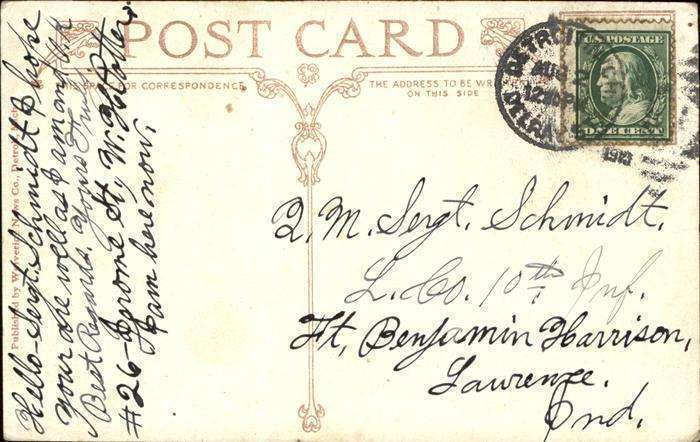 POST CARD
FOR CORRESPONDENCE
THE ADDRESS TO BE
ON THIS SIDE
DETROIT
AUG 2
12
1913
U.S. POSTAGE
ONE CENT
Q. M. Sergt. Schmidt.
L. Co. 10th Inf.
Ft. Benjamin Harrison,
Lawrence.
Ind.
Published by Wolverine News Co., Detroit, Mich.
Hello-Sergt. Schmidt I hope
your are well as I am and the
Best Regards. Yours Truly
#26-Jerome St, W.
I am here now.